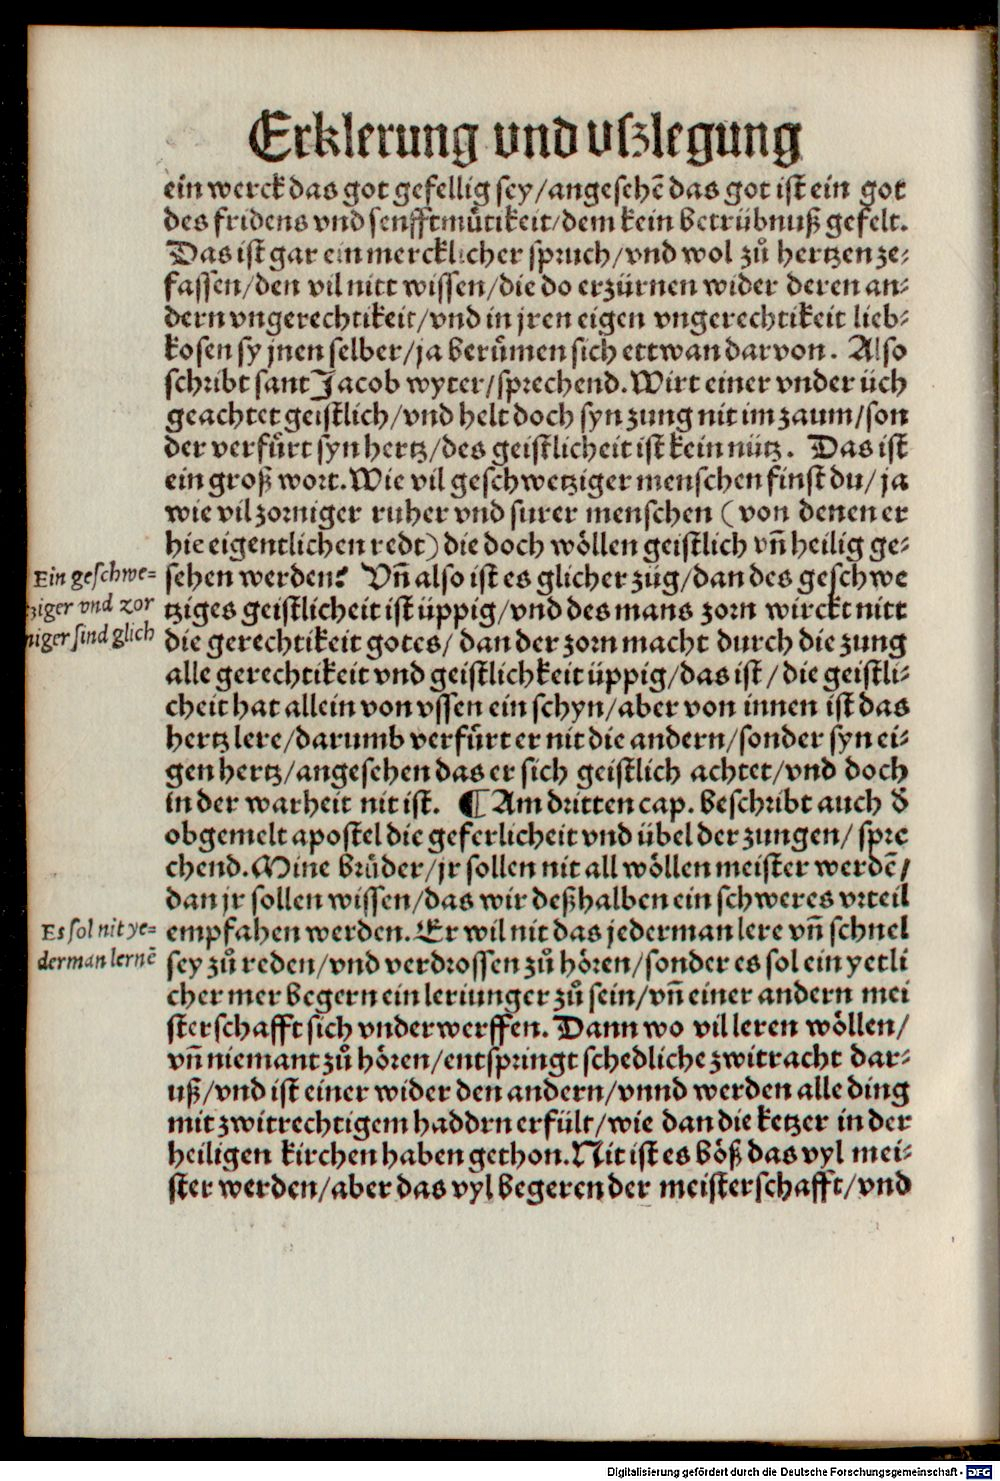 Erklerung vnd vſzlegung
ein werck das got gefellig ſey/angeſehē das got iſt ein got
des fridens vnd ſenfftmuͤtikeit/dem kein betrübnuß gefelt.
Das iſt gar ein mercklicher ſpruch/vnd wol zuͦ hertzen ze⸗
faſſen/den vil nitt wiſſen/die do erzürnen wider deren an⸗
dern vngerechtikeit/vnd in jren eigen vngerechtikeit lieb⸗
koſen ſy jnen ſelber/ja beruͤmen ſich ettwan darvon. Alſo
ſchribt ſant Jacob wyter/ſprechend. Wirt einer vnder üch
geachtet geiſtlich/vnd helt doch ſyn zung nit im zaum/ſon
der verfuͤrt ſyn hertz/des geiſtlicheit iſt kein nütz. Das iſt
ein groß wort. Wie vil geſchwetziger menſchen finſt du/ja
wie vil zorniger ruher vnd ſurer menſchen (von denen er
hie eigentlichen redt) die doch wöllen geiſtlich vn̄ heilig ge⸗
Ein geſchwe⸗
tziger vnd zor
niger ſind glich
ſehen werden? Vn̄ alſo iſt es glicher züg/dan des geſchwe
tziges geiſtlicheit iſt üppig/vnd des mans zorn wirckt nitt
die gerechtikeit gotes/ dan der zorn macht durch die zung
alle gerechtikeit vnd geiſtlichkeit üppig/das iſt/die geiſtli⸗
cheit hat allein von vſſen ein ſchyn/aber von innen iſt das
hertz lere/darumb verfuͤrt er nit die andern/ſonder ſyn ei⸗
gen hertz/angeſehen das er ſich geiſtlich achtet/vnd doch
in der warheit nit iſt. ¶ Am dritten cap. beſchribt auch d̕
obgemelt apoſtel die geferlicheit vnd übel der zungen/ ſpre
chend. Mine bruͤder/jr ſollen nit all wöllen meiſter werdē/
dan jr ſollen wiſſen/das wir deßhalben ein ſchweres vrteil
Es ſol nit ye⸗
derman lernē
empfahen werden. Er wil nit das jederman lere vn̄ ſchnel
ſey zuͦ reden/vnd verdroſſen zuͦ hören/ſonder es ſol ein yetli
cher mer begern ein leriunger zuͦ ſein/vn̄ einer andern mei
ſterſchafft ſich vnderwerffen. Dann wo vil leren wöllen/
vn̄ niemant zuͦ hören/entſpringt ſchedliche zwitracht dar⸗
uß/vnd iſt einer wider den andern/vnnd werden alle ding
mit zwitrechtigem haddrn erfült/wie dan die ketzer in der
heiligen kirchen haben gethon. Nit iſt es böß das vyl mei⸗
ſter werden/aber das vyl begeren der meiſterſchafft/vnd
Digitalisierung gefördert durch die Deutsche Forschungsgemeinschaft - DFG